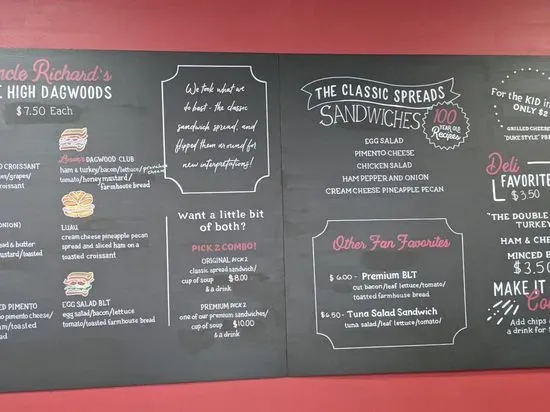 ncle Richard's
E HIGH DAGWOODS
$7.50 Each
D CROISSANT
es/grapes/
roissant
ONION)
ead & butter
ustard/toasted
ED PIMENTO
to pimento cheese/
am/toasted
ad
DAGWOOD CLUB
ham & turkey/bacon/lettuce/provolone cheese
tomato/honey mustard/
farmhouse bread
LUAU
cream cheese pineapple pecan
spread and sliced ham on a
toasted croissant
EGG SALAD BLT
egg salad/bacon/lettuce
tomato/toasted farmhouse bread
We took what we
do best - the classic
sandwich spread, and
flipped them around for
new interpretations!
Want a little bit
of both?
PICK 2 COMBO!
ORIGINAL PICK 2
classic spread sandwich/
cup of soup $8.00
& a drink
PREMIUM PICK 2
one of our premium sandwiches/
cup of soup $10.00
& a drink
THE CLASSIC SPREADS
SANDWICHES
100
YEAR OLD
Recipes
EGG SALAD
PIMENTO CHEESE
CHICKEN SALAD
HAM PEPPER AND ONION
CREAM CHEESE PINEAPPLE PECAN
Other Fan Favorites
$ 6.00 - Premium BLT
cut bacon/leaf lettuce/tomato/
toasted farmhouse bread
$6.50 - Tuna Salad Sandwich
tuna salad/leaf lettuce/tomato/
For the KID in
ONLY $2
GRILLED CHEESE
"DUKE STYLE" PB
Deli
FAVORITE
$3.50
"THE DOUBLE
TURKEY
HAM & CHE
MINCED B
$3.50
MAKE IT
Co
Add chips a
a drink for $